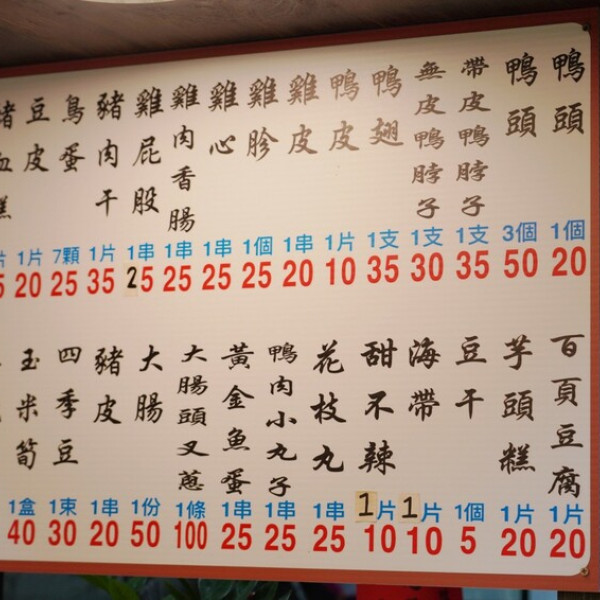 鴨頭 1個 20
鴨頭 3個 50
帶皮鴨脖子 1支 35
無皮鴨脖子 1支 30
鴨翅 1支 35
鴨皮 1片 10
雞皮 1串 20
雞胗 1個 25
雞心 1串 25
雞肉香腸 1串 25
雞屁股 1串 25
豬肉干 1片 35
鳥蛋 7顆 25
豆皮 1片 20
百頁豆腐 1片 20
芋頭糕 1片 20
豆干 1個 5
海帶 1片 10
甜不辣 1片 10
花枝丸 1串 25
鴨肉小丸子 1串 25
黃金魚蛋 1串 25
大腸頭叉蔥 1條 100
大腸 1份 50
豬皮 1串 20
四季豆 1束 30
玉米筍 1盒 40